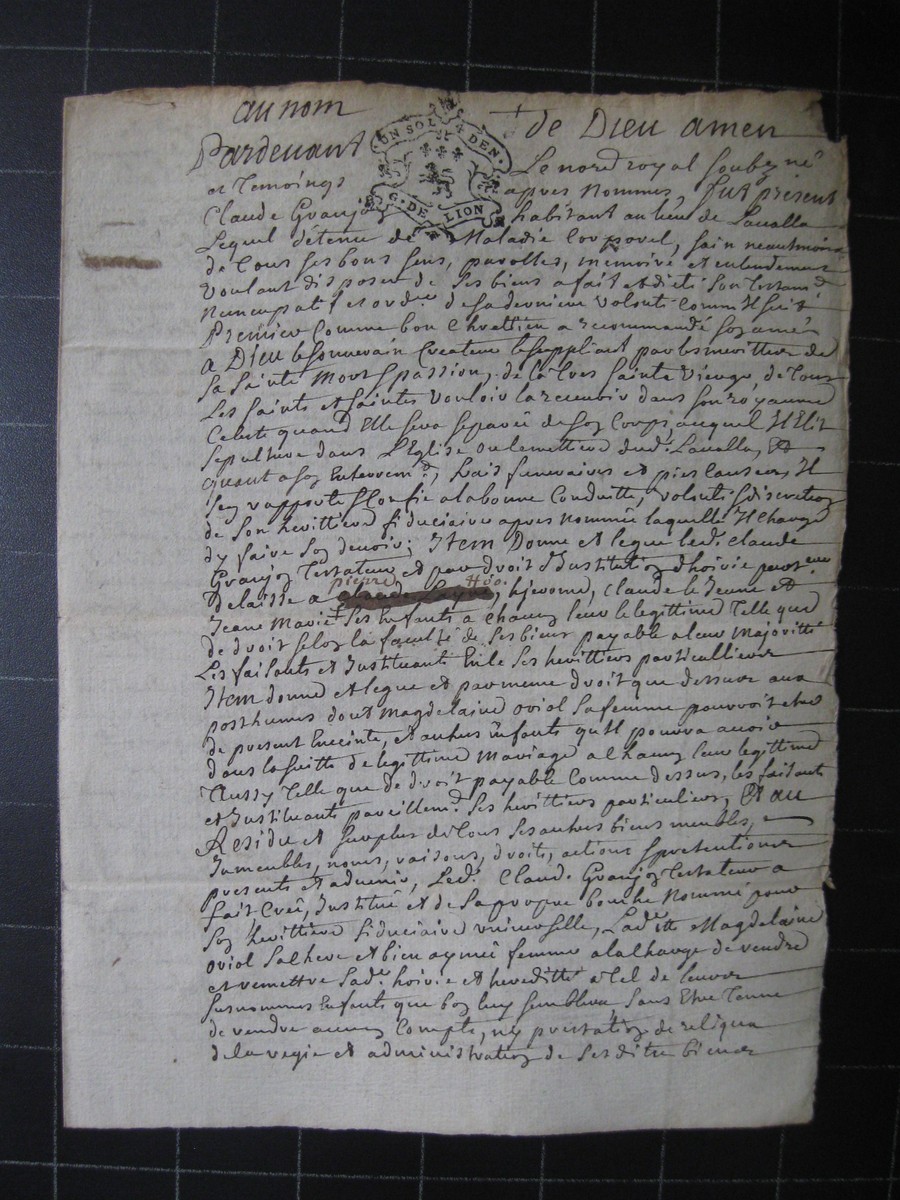 au nom de Dieu amen
UN SOL
DEN.
G. DE LION
Pardevant Le no.re royal soubzné
et Temoings apres nommes, fut présent
Claude Granjon habitant au lieu de Lavalla
Lequel détenu de Maladie Corporel, sain neautmoins
de tous ses bons sens, parolles, memoire et entendement
voulant disposer de ses biens a fait et dicté son testam.t
Nuncupatif et ord.re de sa derniere volonté comm Il suit
Premier comme bon Chrettien a recommandé son ame
a Dieu le souverain Createur le suppliant par les merittes de
sa sainte Mort & passion, de la tres sainte Vierge, de tous
Les saints et saintes vouloir la recevoir dans son royaume
Celeste quand Elle sera separée de son Corps auquel Il Elit
sepulture dans l'Eglise ou cemettiere dud. Lavalla, Et
quant a son Enterrem.t, frais funeraires et pies causes Il
sen rapporte & confie a la bonne Conduitte, volonté & discretion
de son heritiere fiduciaire apres nommée laquelle Il Charge
dy faire son devoir; Item Donne et legue led. Claude
Granjon Testateur et par droit d'Institution d'hoirie
delaisse a pierre, hierome, Claude le Jeune et
Jeane Marie ses Enfants a chacun leur legittime Telle que
de droit selon la faculté de ses biens payable a leur Majoritté
Les faisants et Instituants En ce ses herittiers particulliers
Item donne et legue et par meme droit que dessus aux
posthumes dont Magdelaine oriol sa femme pourroit etre
de present Enceinte, et autres Enfants qu'Il pourra avoir
dans la suitte de legittime Mariage a chacun leur legittime
Aussy Telle que de droit payable Comme dessus, les faisants
et Instituants pareillem.t ses herittiers particuliers, Et au
Residu et surplus de tous ses autres biens meubles,
Immeubles, noms, raisons, droits, actions & pretentions
presents et advenir, Led. Claude Granjon Testateur a
fait, Creé, Institué et de sa propre bouche Nommé pour
son herittiere fiduciaire universelle, Lad.itte Magdelaine
oriol sa chere et bien aymée femme a la charge de rendre
et remettre sad. hoirie et hereditté a tel de leurs
susnommes Enfants que bon luy semblera sans Etre Tenue
de rendre aucun Compte, ny prestation de reliqua
de la regie et administration de sesdits biens